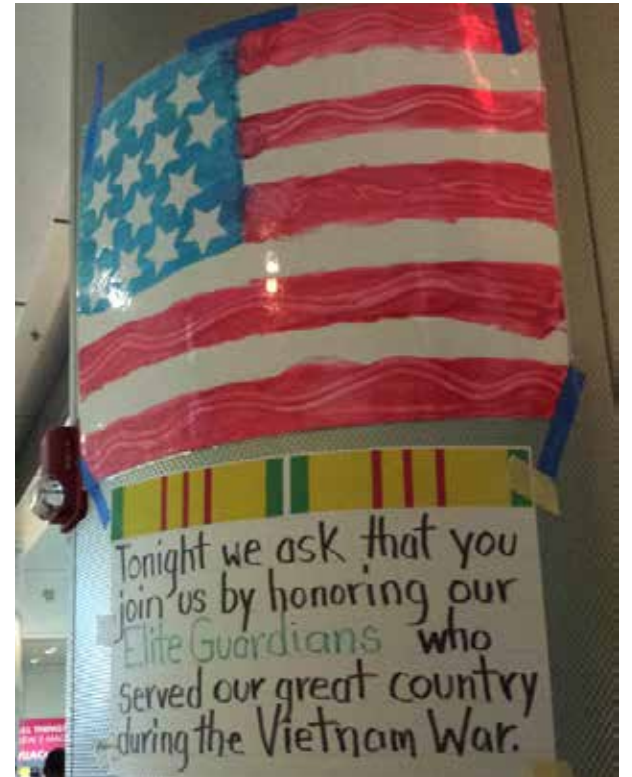 Tonight we ask that you
join us by honoring our
Elite Guardians who
served our great country
during the Vietnam War.